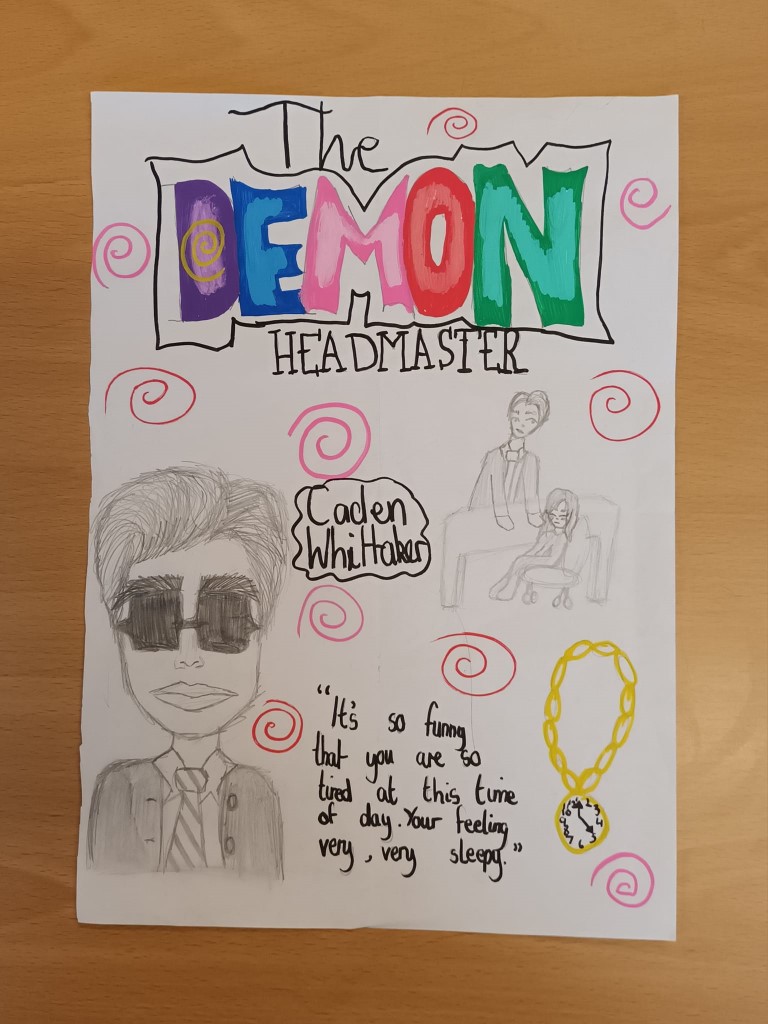 The
DEMON
HEADMASTER
Caden
Whittaker
"It's so funny
that you are so
tired at this time
of day. Your feeling
very, very sleepy."